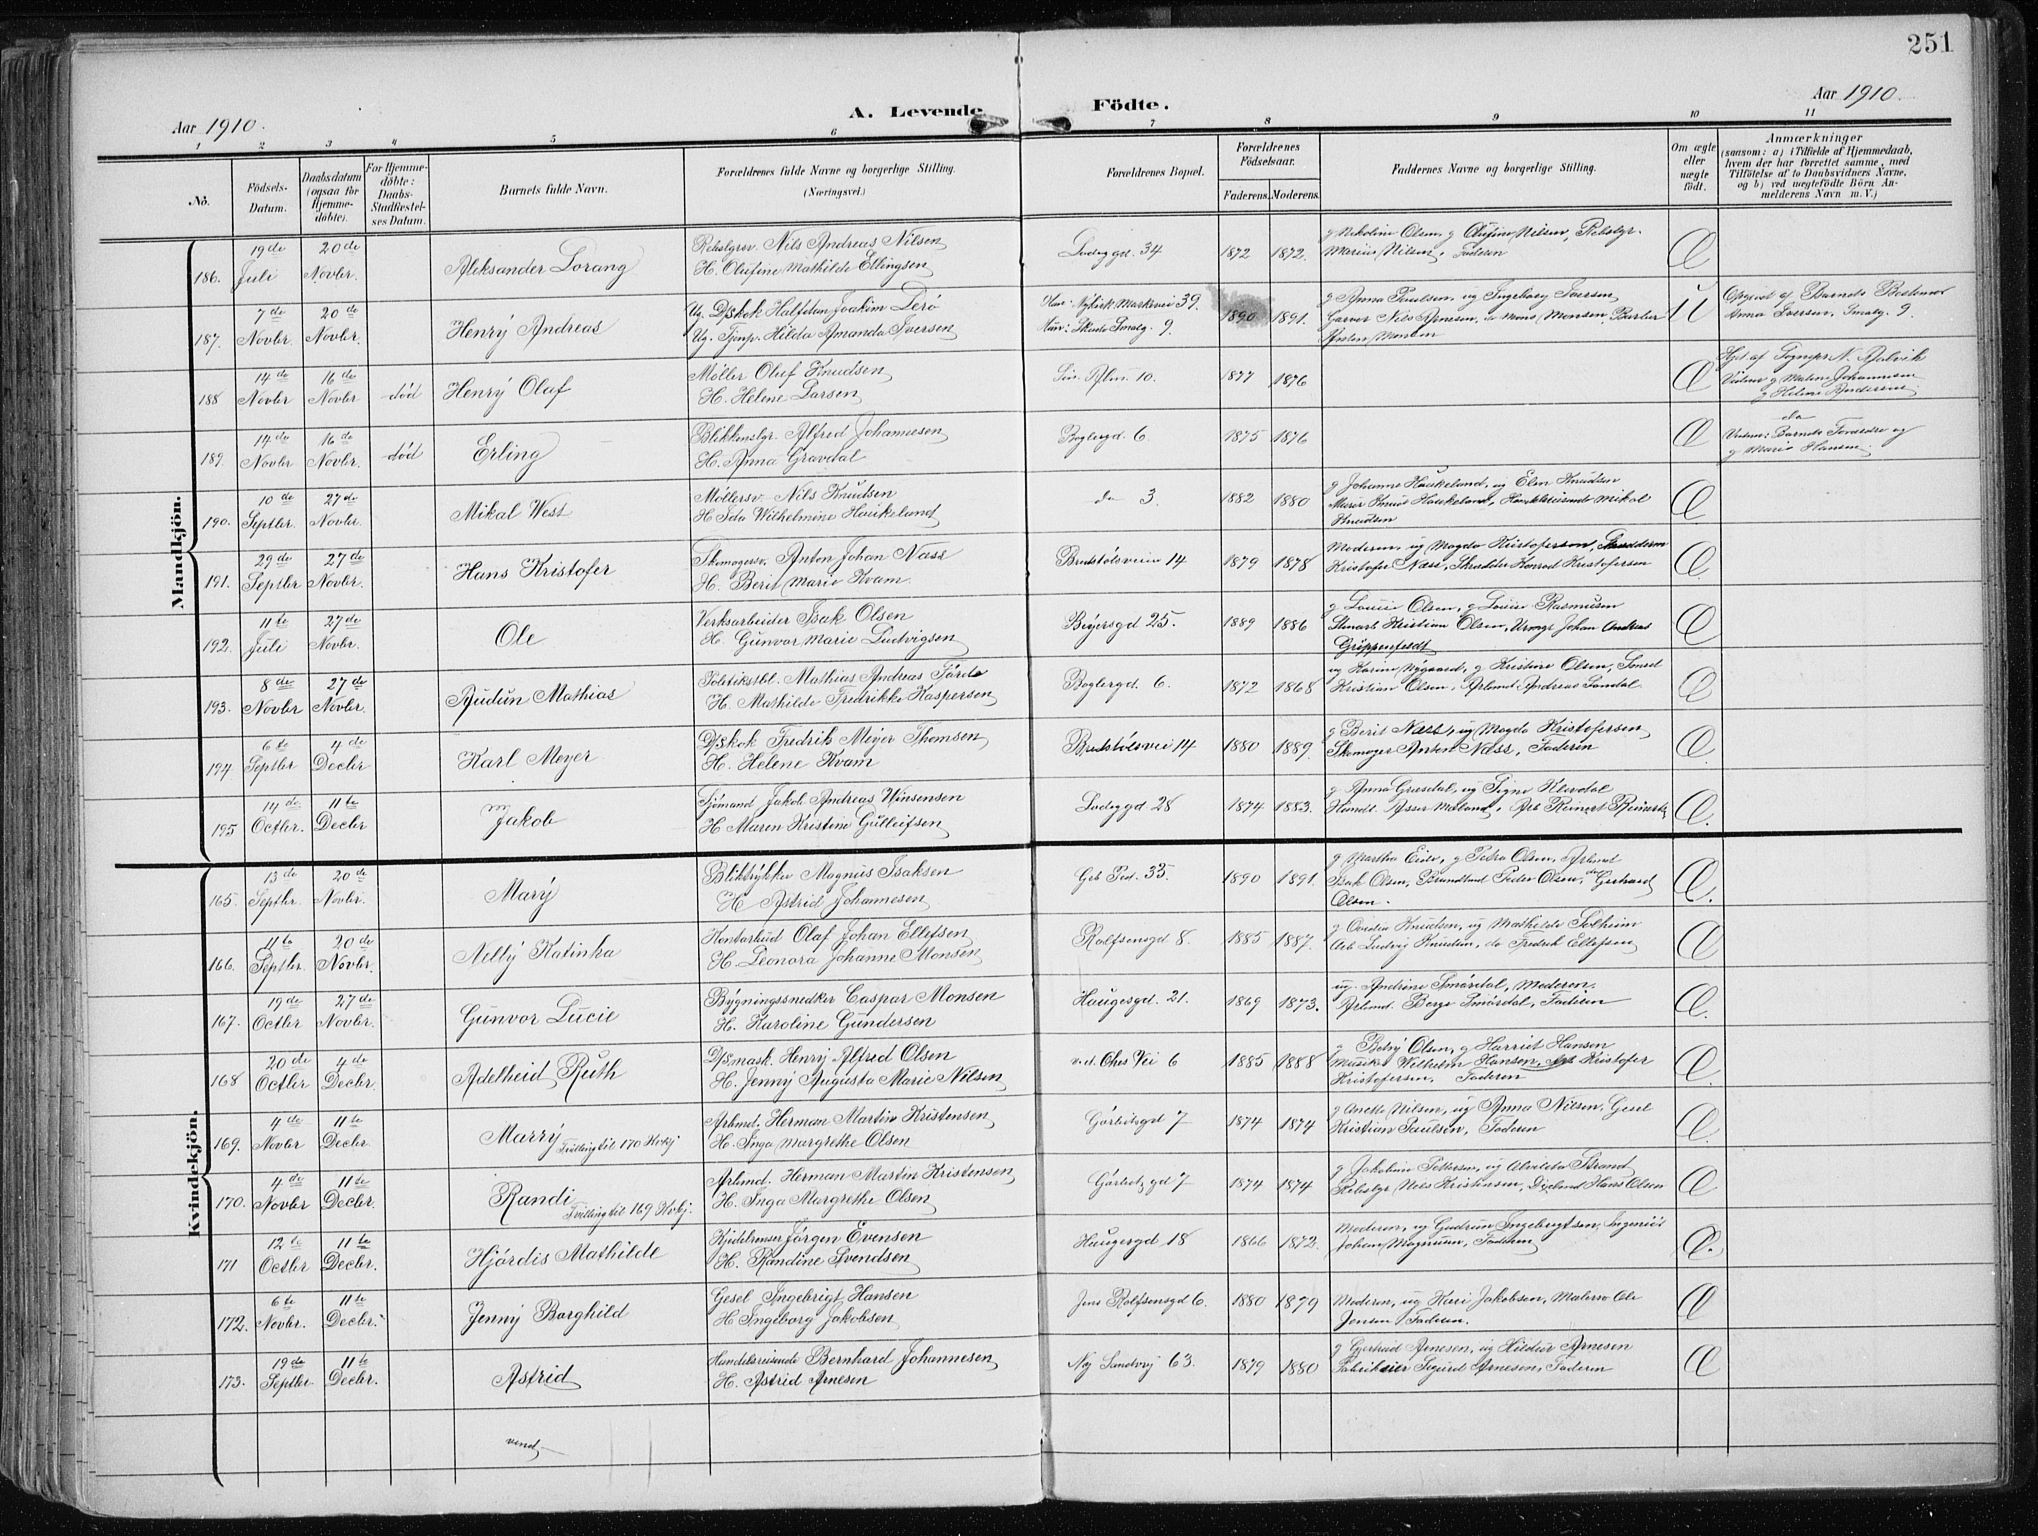 251
Aar 1910.
A. Levende Födte.
Aar 1910.
1 2 3 4 5 6 7 8 9 10 11
No.
Födsels-Datum.
Daabsdatum (ogsaa for Hjemme-døbte).
For Hjemme-døbte: Daabs-Stadfæstel-ses Datum.
Barnets fulde Navn.
Forældrenes fulde Navne og borgerlige Stilling.
(Næringsvei.)
Forældrenes Bopæl.
Forældrenes Födselsaar.
Faderens. Moderens.
Faddernes Navne og borgerlige Stilling.
Om ægte eller uægte födt.
Anmærkninger
(saasom: a) i Tilfælde af Hjemmedaab, hvem der har forrettet samme, med Tilföielse af to Daabsvidners Navne, og b) ved uægtefödte Börn An-melderens Navn m. V.)
Mandkjön.
186. 19de Juli 20de Novbr. Aleksander Lorang
Rebslgrsv. Nils Andreas Nilsen
H. Olufine Mathilde Ellingsen
34 1872 1872.
g Nikoline Olsen, g Olufine Nilsen, Rebslgr.
Marius Nilsen, Faderen
Æ
187. 7de Novbr. 20de Novbr. Henry Andreas
Ug. Dskok Halfdan Joakim Lerö
Ug. Tjenp. Hilda Amanda Iversen
Han: Nykirk. Marksvei 39.
Hun: Skuds Smalg. 9.
1890 1891.
g Anna Paulsen, ug Ingeborg Iversen
Garver Nils Arnesen, do Mons Monsen, Barber
Anton Monsen
U
Opgivet af Barnets Bestemor
Anna Iversen, Smalg. 9.
188 14de Novbr 16de Novbr. død Henry Olaf
Møller Oluf Knudsen
H. Helene Larsen
Alm. 10. 1877 1876
Æ
Hpt. af Sognepr. N. Aalvik
Vidner g Malene Johannesen
g Helene Andersen
189. 14de Novbr 16de Novbr. død Erling
Blikkenslgr. Alfred Johannesen
H. Anna Gravdal
Boglergd. 6. 1875 1876
Æ
do
Vidner: Barnets Forældre og
g Marie Hansen
190. 10de Septbr. 27de Novbr. Mikal West
Møllersv. Nils Knudsen
H. Ida Wilhelmine Haukeland
do 3. 1882 1880
g Johanne Haukeland, ug Elen Knudsen
Murer Knud Haukeland, Handelsreisende Mikal
Knudsen
Æ
191. 29de Septbr 27de Novbr. Hans Kristofer
Skomagersv. Anton Johan Næss
H. Berit Marie Kvam
Brudstolsveien 14 1879 1878
Moderen, ug Magda Kristofersen,
Kristofer Næss, Skrædder Konrad Kristofersen
Æ
192. 11te Juli 27de Novbr. Ole
Verksarbeider Isak Olsen
H. Gunvor Marie Ludvigsen
Beyersgd 25. 1889 1886
g Louise Olsen, g Louise Rasmussen
Kristian Olsen, Johan Andreas
Grippenfeldt
Æ
193. 8de Novbr 27de Novbr. Audun Mathias
Politikstbl. Mathias Andreas Førde
H. Mathilde Fredrikke Kaspersen
Boglergd. 6. 1872 1868
ug Karine Nygaard, g Kristine Olsen, Smed
Kristian Olsen, Arbmd. Andreas Sandal
Æ
194 6te Septbr 4de Decbr Karl Meyer
Dskok Fredrik Meyer Thomsen
H. Helene Kvam
Brudstolsvei 14 1880 1889.
g Berit Næss, ug Magda Kristofersen,
Skomager Anton Næss, Faderen
Æ
195 14de Octbr. 11te Decbr Jakob
Sjömand Jakob Andreas Vinsensen
H Maren Kristine Gulleifsen
28 1874 1883.
g Anna Græsdal, ug Signe Klevdal
Handl. Asser Meland, Arb Reinert Reinerts
Æ
Kvindekjön.
165. 13de Septbr. 20de Novbr. Mary
Bliktrykker Magnus Isaksen
H Astrid Johannesen
35. 1890 1891.
g Martha Eide, g Petra Olsen, Arbmd
Isak Olsen, Brandmd Peder Olsen, do Gerhard
Olsen.
Æ
166. 11te Septbr. 20de Novbr. Nelly Katinka
Kontorbud Olaf Johan Ellefsen
H. Leonora Johanne Monsen
Rolfsensgd 8. 1885 1887.
g Ovidia Knudsen, ug Mathilde Solheim
Arb Ludvig Knudsen, do Fredrik Ellefsen
Æ
167. 19de Octbr 27de Novbr. Gunvor Lucie
Bygningssnedker Caspar Monsen
H. Karoline Gundersen
Haugesgd. 21. 1869 1873.
ug. Andrine Smørdal, Moderen,
Arbmd. Berge Smørdal, Faderen
Æ
168 20de Octbr 4de Decbr. Adelheid Ruth
Dsmask. Henry Alfred Olsen
H. Jenny Augusta Marie Nilsen
Vei 6 1885 1888
g Betsy Olsen, g Harriet Hansen
Musiker Wilhelm Hansen, Kristofer
Kristofersen, Faderen
Æ
169. 4de Novbr 11te Decbr. Marry Tvilling til 170 Kvkj
Arbmd. Herman Martin Kristensen
H. Inga Margrethe Olsen
Görbitzgd 7 1874 1874
g Anette Nilsen, ug Anna Nilsen, Gesel
Kristian Paulsen, Faderen
Æ
170. 4de Novbr 11te Decbr. Randi Tvilling til 169 Kvkj.
Arbmd. Herman Martin Kristensen
H. Inga Margrethe Olsen
Görbitzgd 7 1874 1874
g Jakobine Pettersen, ug Alvilda Strand
Rebslgr Nils Kristensen, Hans Olsen
Æ
171 12te Octbr 11te Decbr. Hjørdis Mathilde
Kjedelrenser Jørgen Evensen
H. Randine Svendsen
Haugesgd 18 1866 1872.
Moderen, ug Gudrun Ingebrigtsen, Ingeniör
Johan Magnum, Faderen
Æ.
172. 6te Novbr. 11te Decbr. Jenny Borghild
Gesel Ingebrigt Hansen
H Ingeborg Jakobsen
Jens Rolfsensgd 6. 1880 1879
Moderen, ug Kari Jakobsen, Malersv Ole
Jensen, Faderen.
Æ
173. 19de Septbr 11te Decbr. Astrid
Handelsreisende Bernhard Johannesen
H. Astrid Arnesen
Ny Sandvig 63. 1879 1880
g Gjertrud Arnesen, ug Hildur Arnesen
Fabrikeier Sigurd Arnesen, Faderen
Æ
vend